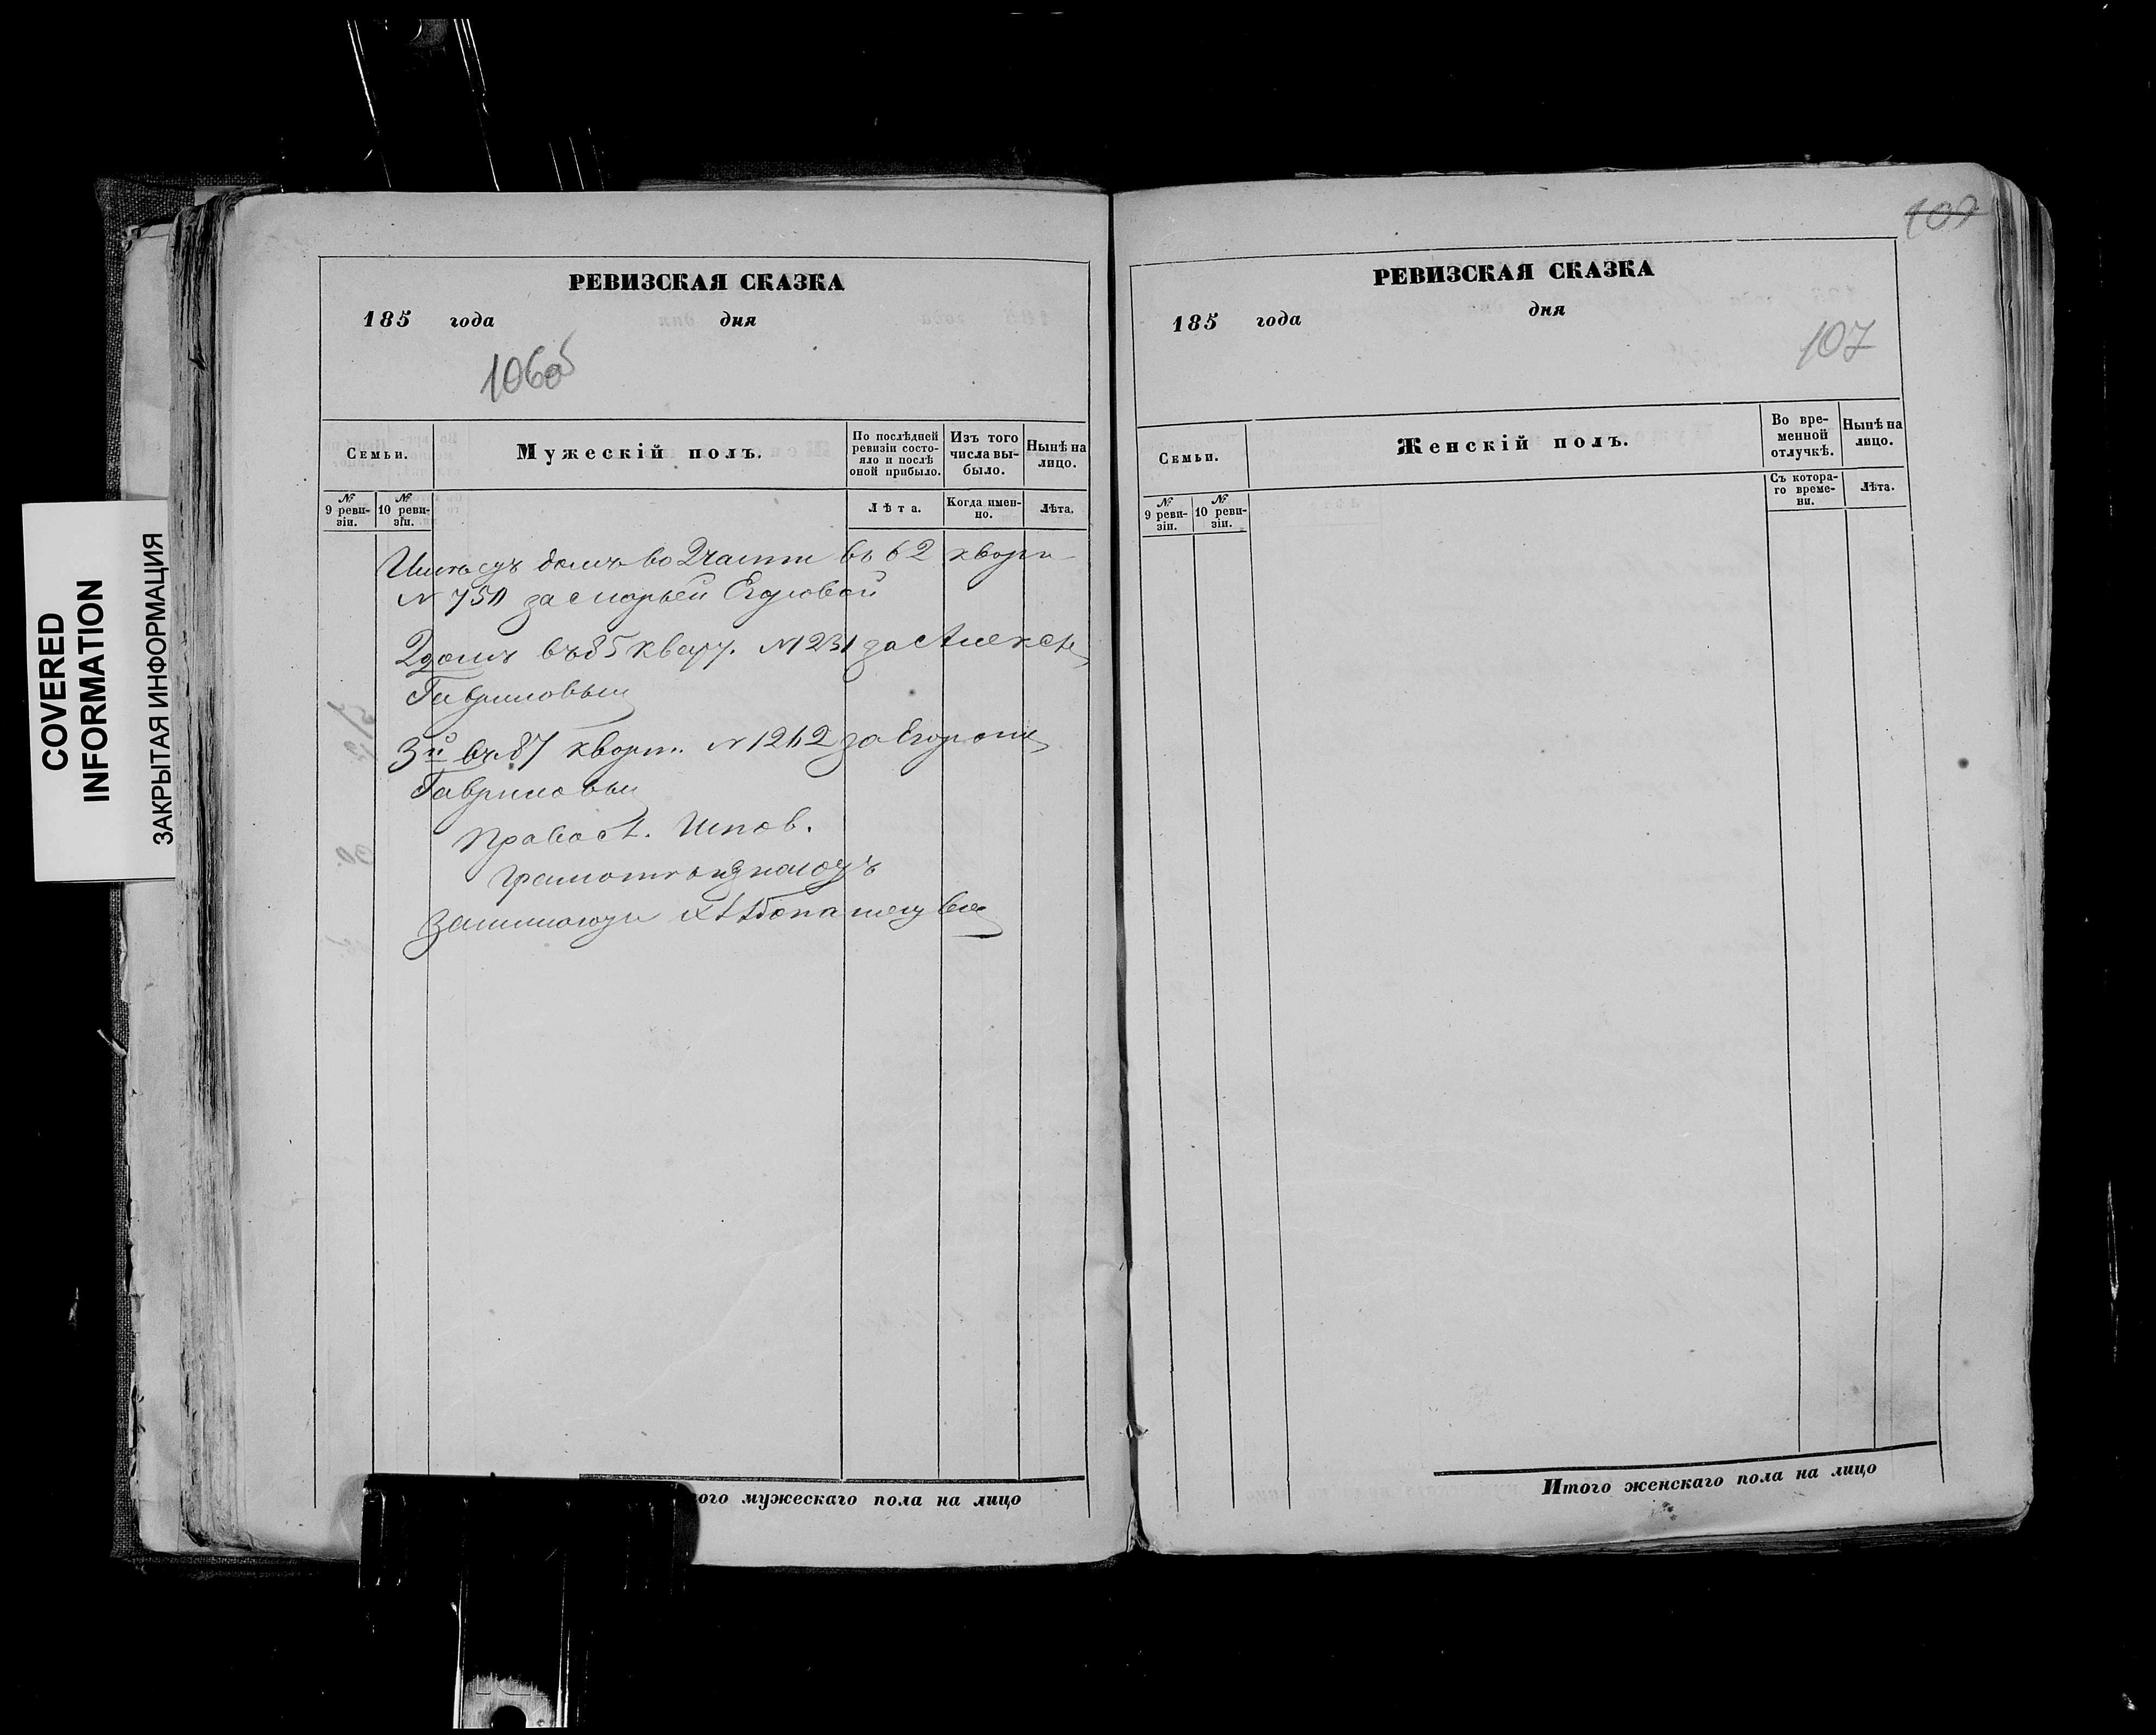 COVERED
INFORMATION
ЗАКРЫТАЯ ИНФОРМАЦИЯ
РЕВИЗСКАЯ СКАЗКА
185 года дня
106об
Семьи.
Мужескій полъ.
По послѣдней ревизіи состояло и послѣ оной прибыло.
Изъ того числа выбыло.
Нынѣ на лицо.
№ 9 ревизіи.
№ 10 ревизіи.
Лѣта.
Когда именно.
Лѣта.
Имеютъ домъ во 2 части въ 62 кварт
№ 750 за Марьей Егоровой
2 домъ въ 85 кварт. № 1231 за Алексѣ
Гавриловым
3й въ 87 кварт. № 1262 за Егором
Гавриловым
Правосл. Испов.
грамоте знают
занимаются хлебопашеством
ого мужескаго пола на лицо
109
РЕВИЗСКАЯ СКАЗКА
185 года дня
107
Семьи.
Женскій полъ.
Во временной отлучкѣ.
Нынѣ на лицо.
№ 9 ревизіи.
№ 10 ревизіи.
Съ котораго времени.
Лѣта.
Итого женскаго пола на лицо